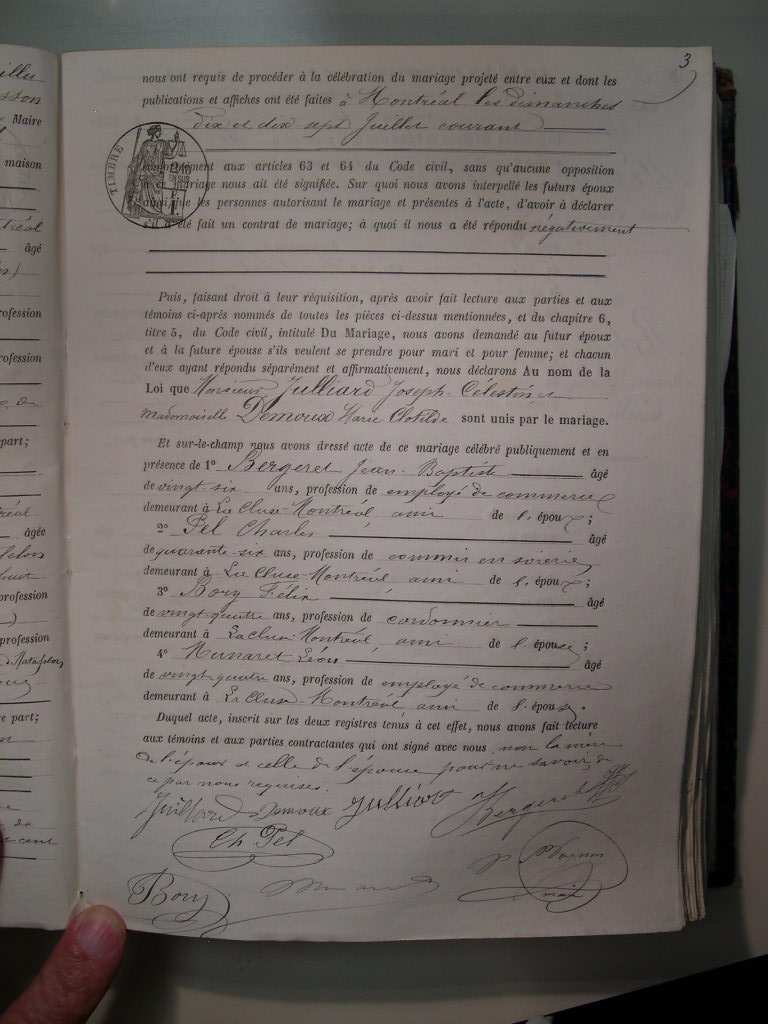 3
nous ont requis de procéder à la célébration du mariage projeté entre eux et dont les
publications et affiches ont été faites à Montréal les dimanches
dix et dix sept Juillet courant
TIMBRE
aux articles 63 et 64 du Code civil, sans qu'aucune opposition
mariage nous ait été signifiée. Sur quoi nous avons interpellé les futurs époux
les personnes autorisant le mariage et présentes à l'acte, d'avoir à déclarer
s'il a été fait un contrat de mariage; à quoi il nous a été répondu négativement
Puis, faisant droit à leur réquisition, après avoir fait lecture aux parties et aux
témoins ci-après nommés de toutes les pièces ci-dessus mentionnées, et du chapitre 6,
titre 5, du Code civil, intitulé Du Mariage, nous avons demandé au futur époux
et à la future épouse s'ils veulent se prendre pour mari et pour femme; et chacun
d'eux ayant répondu séparément et affirmativement, nous déclarons Au nom de la
Loi que Monsieur Julliard Joseph-Célestin &
Mademoiselle Demoux Marie Clotilde sont unis par le mariage.
Et sur-le-champ nous avons dressé acte de ce mariage célébré publiquement et en
présence de 1° Bergeret Jean-Baptiste âgé
de vingt-six ans, profession de employé de commerce
demeurant à La Cluse-Montréal ami de l'époux;
2° Pel Charles âgé
de quarante-six ans, profession de commis en soierie
demeurant à La Cluse-Montréal ami de l'époux;
3° Bory Félix âgé
de vingt-quatre ans, profession de cordonnier
demeurant à La Cluse-Montréal ami de l'épouse;
4° Munaret Léon âgé
de vingt-quatre ans, profession de employé de commerce
demeurant à La Cluse-Montréal ami de l'épouse.
Duquel acte, inscrit sur les deux registres tenus à cet effet, nous avons fait lecture
aux témoins et aux parties contractantes qui ont signé avec nous non la mère
de l'époux et celle de l'épouse pour ne savoir, de
ce par nous requises.
Juilliard Demoux Julliard Bergeret
Ch Pel
Bory
Maire
maison
âgé
profession
profession
part;
âgée
profession
profession
part;